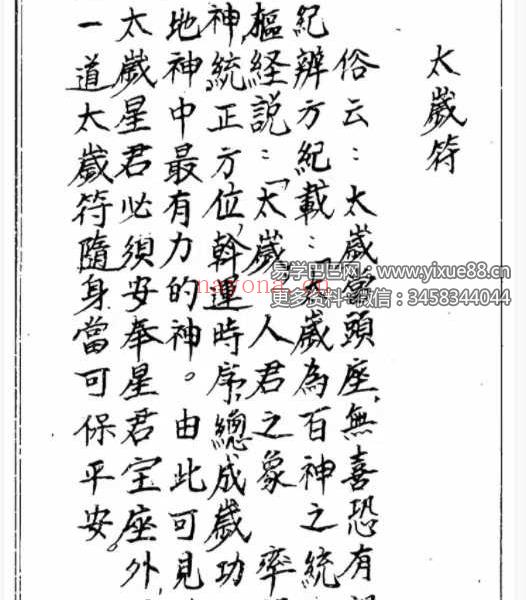 太歲符
俗云：太歲當頭座，無喜恐有
紀辨方紀載：「太歲為百神之統
樞経説：「太歲，人君之象 率
神，統正方位，斡運時序，總成歲功
地神中最有力的神。由此可見
太歲星君必須安奉星君宝座外，
一道太歲符隨身當可保平安。
易学巴巴网：www.yixue88.cn
更多资料 微信：3458344044
nayona.cn